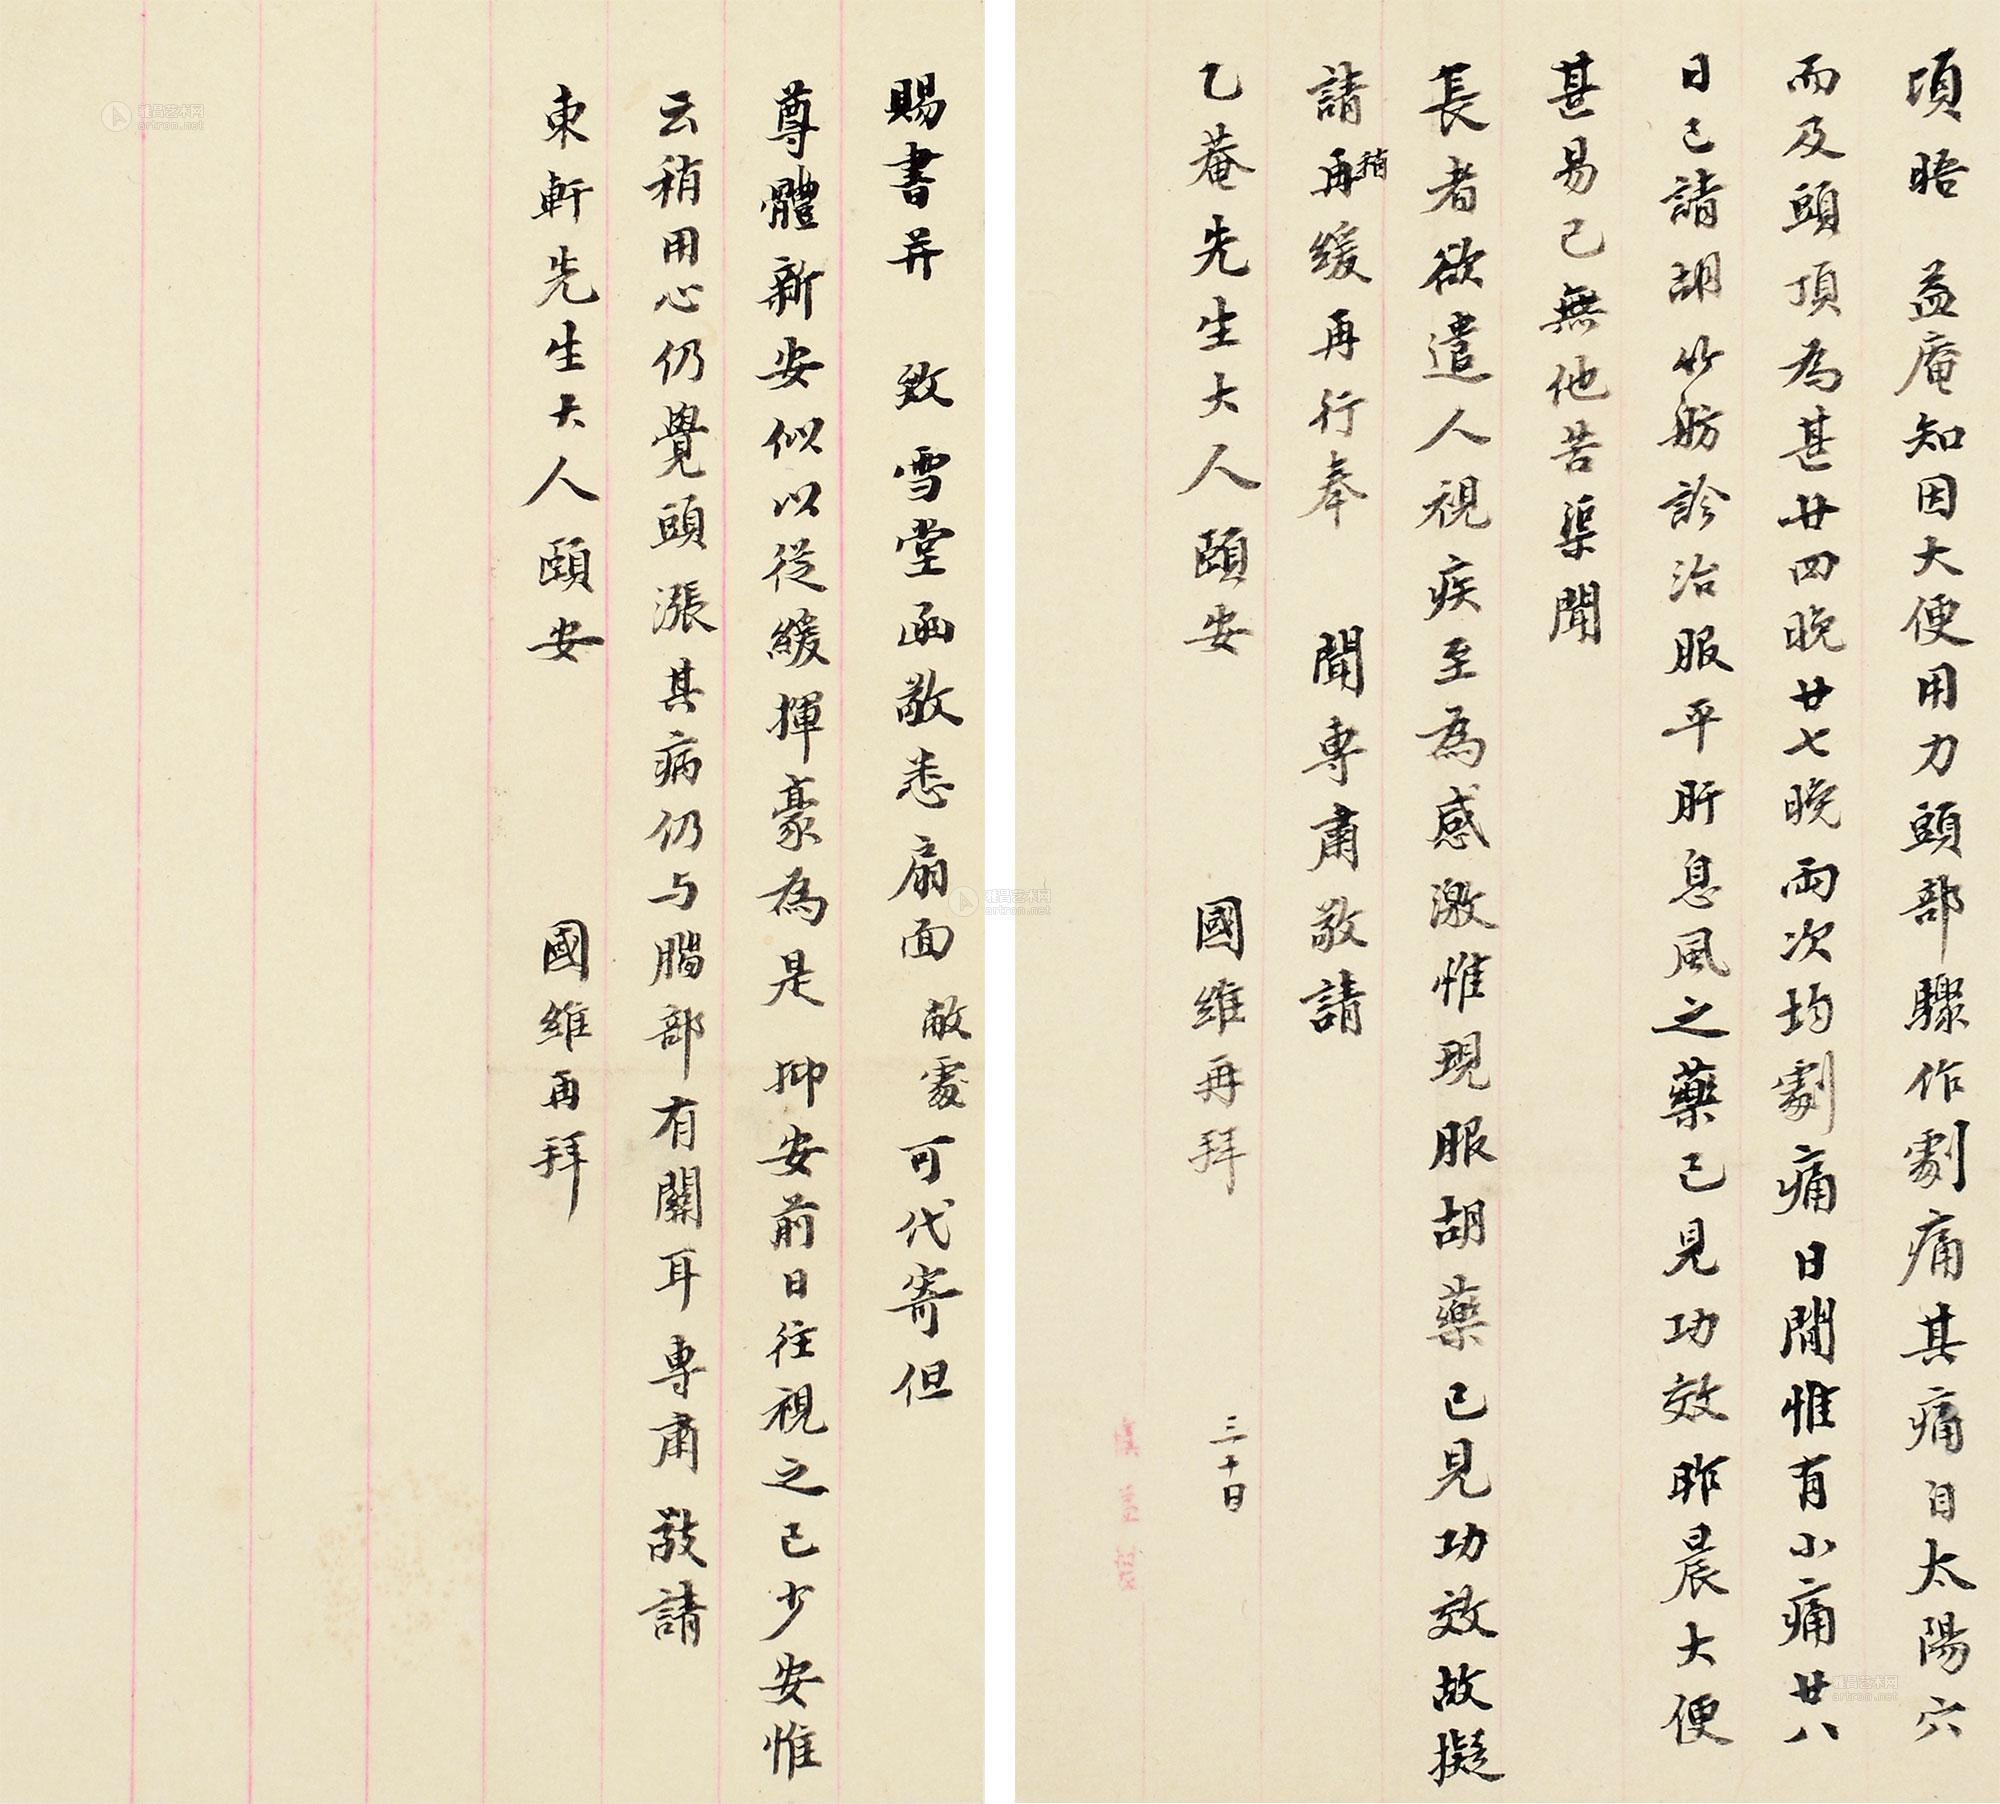 頃晤　益庵知因大便用力頭部驟作劇痛其痛自太陽穴
而及頭頂為甚廿四晚廿七晚兩次均劇痛日間惟有小痛廿八
日已請胡竹舫診治服平肝息風之藥已見功效昨晨大便
甚易已無他苦渠聞
長者欲遣人視疾至為感激惟現服胡藥已見功效故擬
請再稍緩再行奉　聞專肅敬請
乙菴先生大人頤安　國維再拜　三十日
賜書并　致雪堂函敬悉扇面敝處可代寄但
尊體新安似以從緩揮豪為是　抑安前日往視之已少安惟
云稍用心仍覺頭漲其病仍与腦部有關耳專肅　敬請
東軒先生大人頤安　國維再拜
雅昌艺术网
artron.net
雅昌艺术网
artron.net
雅昌艺术网
artron.net